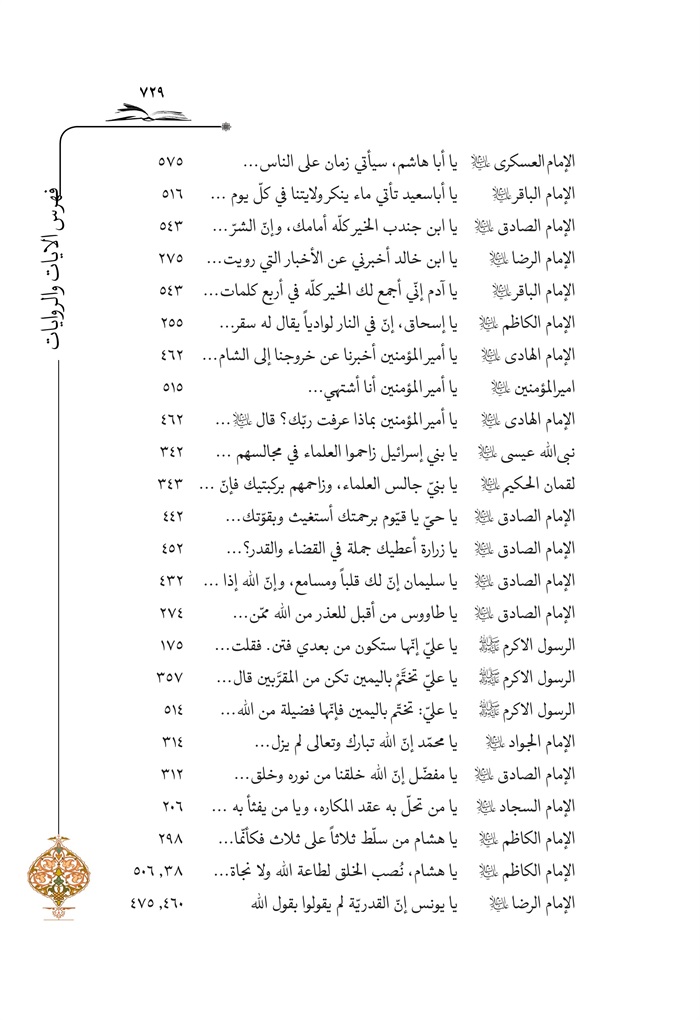 ٧٢٩
فهرس الآيات والروايات
الإمام العسكرى علیه‌السلام يا أبا هاشم، سيأتي زمان على الناس... ٥٧٥
الإمام الباقر علیه‌السلام يا أباسعيد تأتي ماء ينكر ولايتنا في كلّ يوم ... ٥١٦
الإمام الصادق علیه‌السلام يا ابن جندب الخير كلّه أمامك، وإنّ الشرّ... ٥٤٣
الإمام الرضا علیه‌السلام يا ابن خالد أخبرني عن الأخبار التي رويت... ٢٧٥
الإمام الباقر علیه‌السلام يا آدم إنّي أجمع لك الخير كلّه في أربع كلمات... ٥٤٣
الإمام الكاظم علیه‌السلام يا إسحاق، إنّ في النار لوادياً يقال له سقر... ٢٥٥
الإمام الهادى علیه‌السلام يا أمير المؤمنين أخبرنا عن خروجنا إلى الشام... ٤٦٢
اميرالمؤمنين علیه‌السلام يا أمير المؤمنين أنا أشتهي... ٥١٥
الإمام الهادى علیه‌السلام يا أمير المؤمنين بماذا عرفت ربّك؟ قال علیه‌السلام... ٤٦٢
نبى‌الله عيسى علیه‌السلام يا بني إسرائيل زاحموا العلماء في مجالسهم ... ٣٤٢
لقمان الحكيم علیه‌السلام يا بنيّ جالس العلماء، وزاحمهم بركبتيك فإنّ ... ٣٤٣
الإمام الصادق علیه‌السلام يا حيّ يا قيّوم برحمتك أستغيث وبقوّتك... ٤٤٢
الإمام الصادق علیه‌السلام يا زرارة أعطيك جملة في القضاء والقدر؟... ٤٥٢
الإمام الصادق علیه‌السلام يا سليمان إنّ لك قلباً ومسامع، وإنّ الله إذا ... ٤٣٢
الإمام الصادق علیه‌السلام يا طاووس من أقبل للعذر من الله ممّن... ٢٧٤
الرسول الاكرم ﷺ يا عليّ إنّها ستكون من بعدي فتن. فقلت... ١٧٥
الرسول الاكرم ﷺ يا عليّ تختَّمْ باليمين تكن من المقرَّبين قال... ٣٥٧
الرسول الاكرم ﷺ يا عليّ: تختّم باليمين فإنّها فضيلة من الله... ٥١٤
الإمام الجواد علیه‌السلام يا محمّد إنّ الله تبارك وتعالى لم يزل... ٣١٤
الإمام الصادق علیه‌السلام يا مفضّل إنّ الله خلقنا من نوره وخلق... ٣١٢
الإمام السجاد علیه‌السلام يا من تحلّ به عقد المكاره، ويا من يفثأ به ... ٢٠٦
الإمام الكاظم علیه‌السلام يا هشام من سلّط ثلاثاً على ثلاث فكأنّما... ٢٩٨
الإمام الكاظم علیه‌السلام يا هشام، نُصب الخلق لطاعة الله ولا نجاة... ٣٨, ٥٠٦
الإمام الرضا علیه‌السلام يا يونس إنّ القدريّة لم يقولوا بقول الله ٤٦٠, ٤٧٥